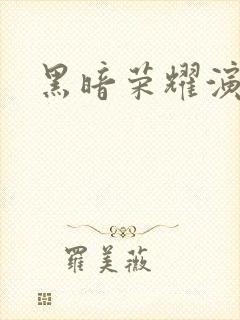 黑暗荣耀演
羅美薇